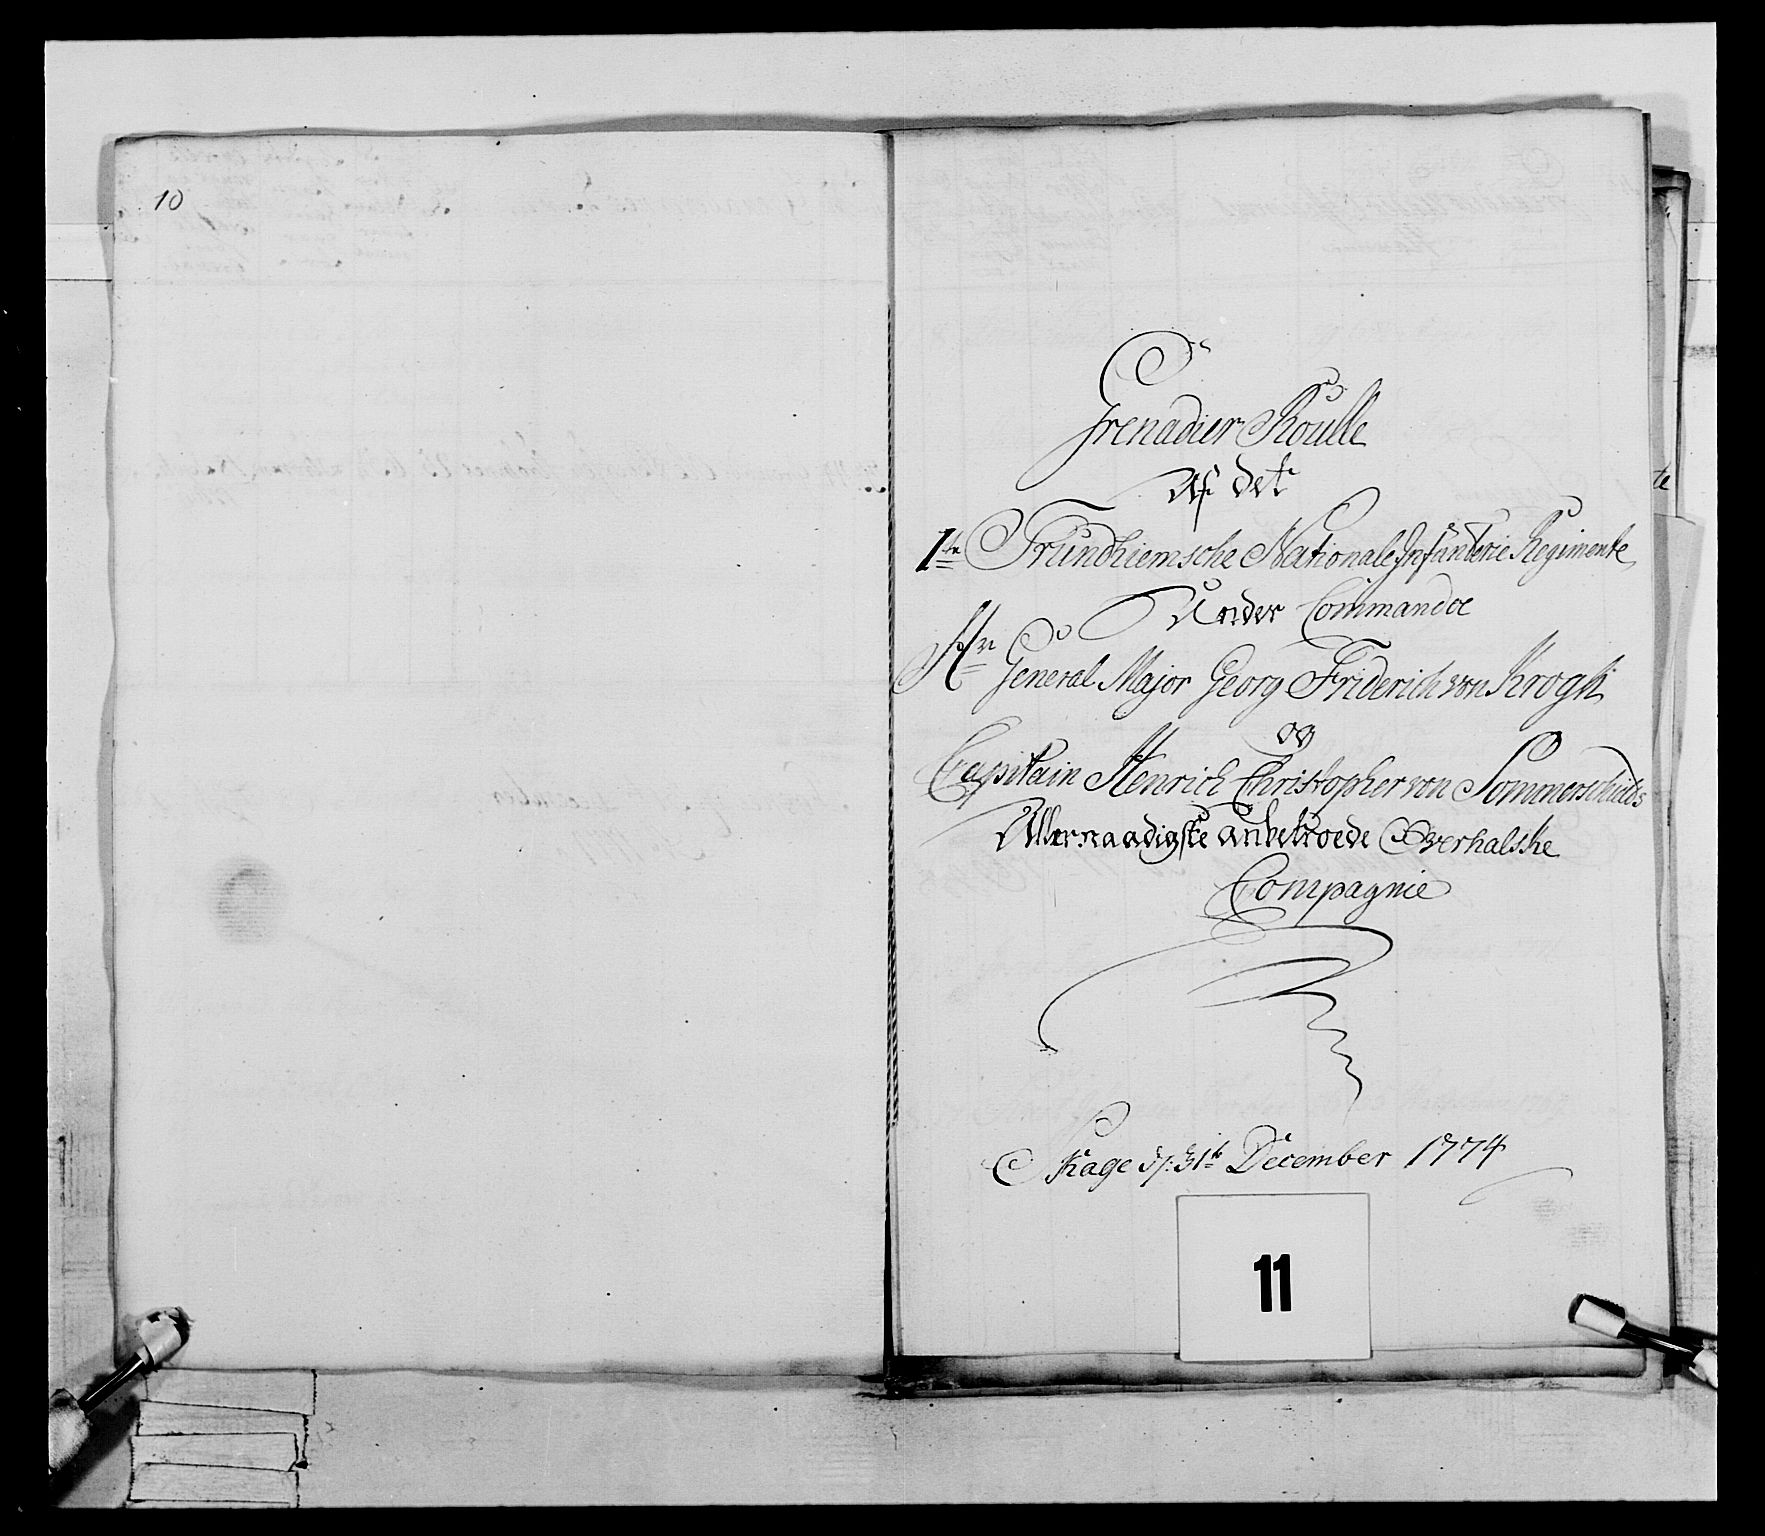 10
Grenadier Roulle
Af det
1te Trundhiemsche Nationale Infanterie Regimente
Under Commando
Hr General Major Georg Friderich von Krogh
og
Capitain Henrich Christopher von Sommerschields
Allernaadigste anbetroede Sverhalske
Compagnie
Skage d: 31te December 1774
te
11